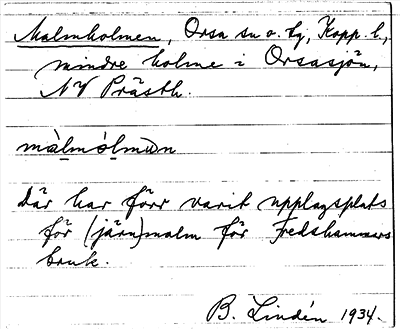 Malmholmen, Orsa sn o. tg, Kopp. l.,
mindre holme i Orsasjön,
NV Prästh.
màlmòlmən
där har förr varit upplagsplats
för (järn)malm för Fredshammars
bruk.
B. Lindén 1934.